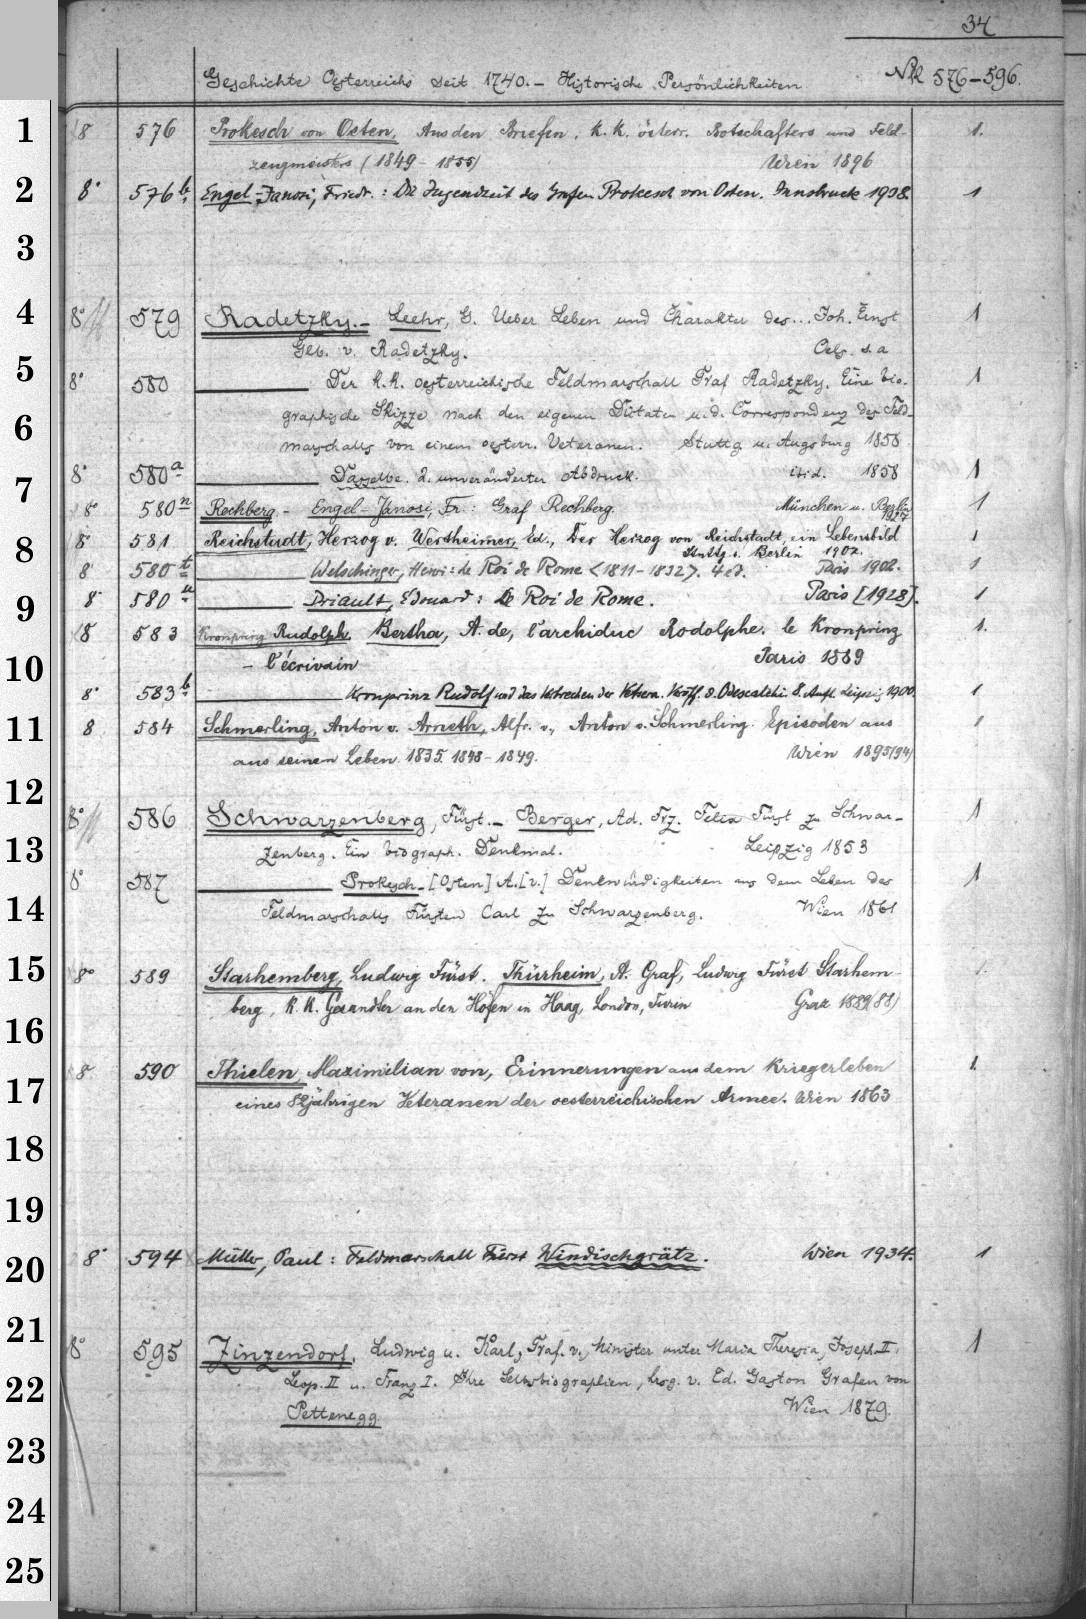 34
Geschichte Oesterreichs seit 1740. – Historische Persönlichkeiten. NR 576–596.
1 8 576 Prokesch von Osten, Aus den Briefen. K. K. österr. Botschafters und Feld- 1.
zeugmeisters (1849–1855) Wien 1896
2 8° 576b. Engel-Janosi, Friedr.: Die Jugendzeit des Grafen Prokesch von Osten. Innsbruck 1938. 1
3
4 8° 579 Radetzky.– Leehr, G. Ueber Leben und Charakter des... Joh. Ernst 1
Geb. v. Radetzky. Oels. s. a
5 8° 580 Der K. K. oesterreichische Feldmarschall Graf Radetzky. Eine bio- 1
6 graphische Skizze nach den eigenen Dictaten u. d. Correspondenz des Feld-
marschalls von einem oesterr. Veteranen. Stuttg u. Augsburg 1858
7 8° 580a Dasselbe. 2. unveränderter Abdruck. ibid. 1858 1
8° 580n Rechberg.- Engel-Jánosi, Fr.: Graf Rechberg. München u. Berlin 1927 1
8 8° 581 Reichstadt, Herzog v. Wertheimer, Ed., Der Herzog von Reichstadt, ein Lebensbild 1
Stuttg. u. Berlin 1902.
8° 580t Welschinger, Henri: le Roi de Rome <1811–1832>. 4 ed. Paris 1902. 1
9 8° 580u Driault, Edouard: Le Roi de Rome. Paris [1928]. 1
8 583 Kronprinz Rudolph. Bertha, A. de, l'archiduc Rodolphe. le Kronprinz 1.
10 – l'écrivain Paris 1889
8° 583b. Kronprinz Rudolf und das Verbrechen der Vetsera. Veröff. v. Odescalchi. 8. Aufl. Leipzig 1900. 1
11 8 584 Schmerling, Anton v. Arneth, Alfr. v., Anton v. Schmerling. Episoden aus 1
aus seinem Leben 1835. 1848–1849. Wien 1895(94)
12
8° 586 Schwarzenberg, Fürst.– Berger, Ad. Frz. Felix Fürst zu Schwar- 1
13 zenberg. Ein biograph. Denkmal. Leipzig 1853
8° 587 Prokesch-[Osten] A.[v.] Denkwürdigkeiten aus dem Leben des 1
14 Feldmarschalls Fürsten Carl zu Schwarzenberg. Wien 1861
15 8° 589 Starhemberg, Ludwig Fürst. Thürheim, A. Graf, Ludwig Fürst Starhem- 1.
berg, K. K. Gesandter an den Höfen in Haag, London, Turin Graz 1889(88)
16
8° 590 Thielen, Maximilian von, Erinnerungen aus dem Kriegerleben 1.
17 eines 82jährigen Veteranen der oesterreichischen Armee. Wien 1863
18
19
20 8° 594 Müller, Paul: Feldmarschall Fürst Windischgrätz. Wien 1934. 1
21 8° 595 Zinzendorf, Ludwig u. Karl, Graf. v., Minister unter Maria Theresia, Joseph II, 1
22 Leop. II u. Franz I. Ihre Selbstbiographien, hrsg. v. Ed. Gaston Grafen von
Pettenegg. Wien 1879.
23
24
25